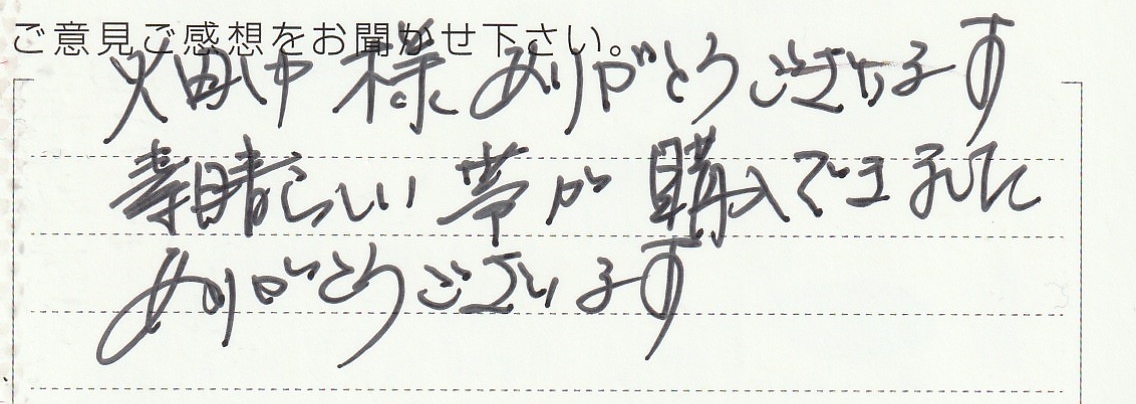 ご意見ご感想をお聞かせ下さい。
畑中様ありがとうございます
素晴らしい帯が購入できまして
ありがとうございます